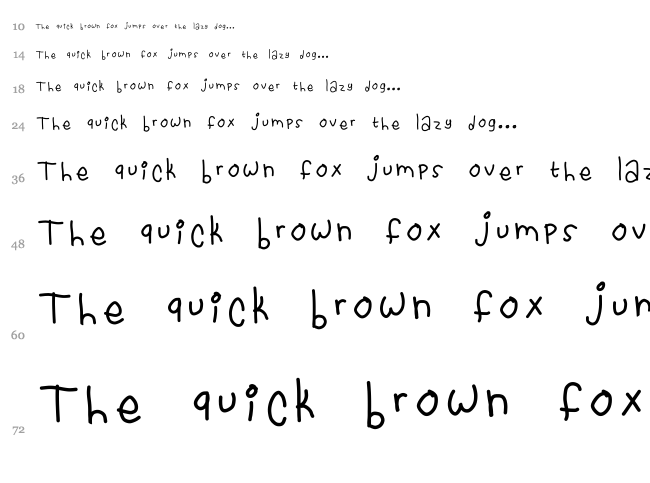 10 The quick brown fox jumps over the lazy dog...
14 The quick brown fox jumps over the lazy dog...
18 The quick brown fox jumps over the lazy dog...
24 The quick brown fox jumps over the lazy dog...
36 The quick brown fox jumps over the laz
48 The quick brown fox jumps ov
60 The quick brown fox jun
72 The quick brown fox